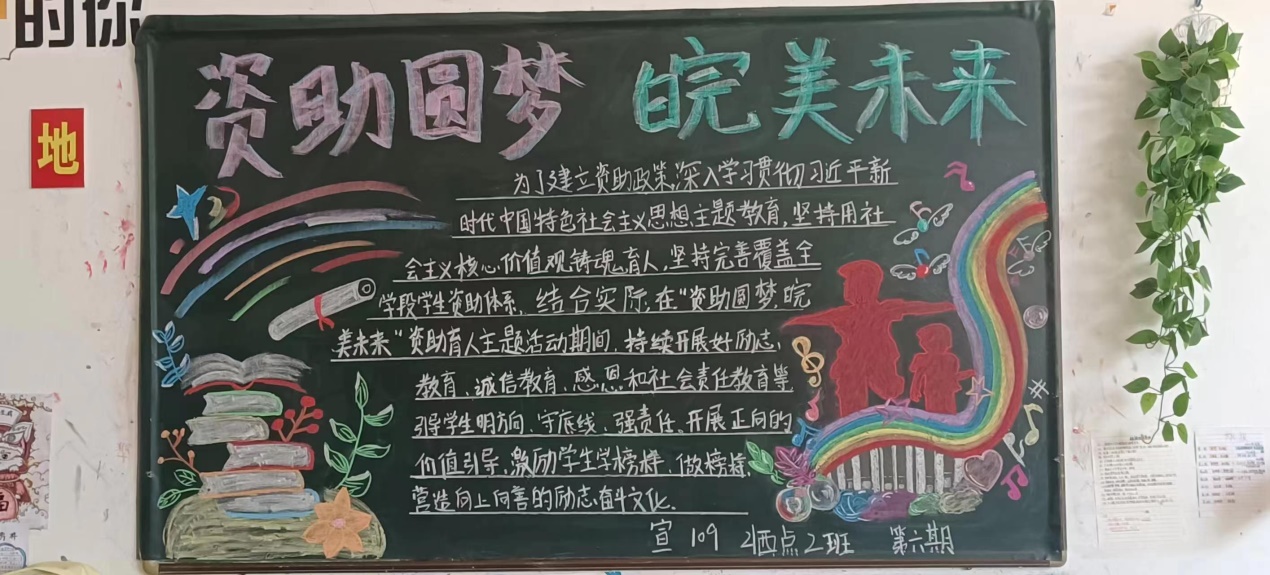 的你
地
资助圆梦 皖美未来
为了建立资助政策,深入学习贯彻习近平新
时代中国特色社会主义思想主题教育,坚持用社
会主义核心价值观铸魂育人,坚持完善覆盖全
学段学生资助体系,结合实际,在“资助圆梦,皖
美未来”资助育人主题活动期间,持续开展好励志、
教育、诚信教育、感恩和社会责任教育等
引导学生明方向、守底线、强责任、开展正向的
价值引导,激励学生学榜样、做榜样,
营造向上向善的励志奋斗文化.
宣109 22西点2班 第六期
福